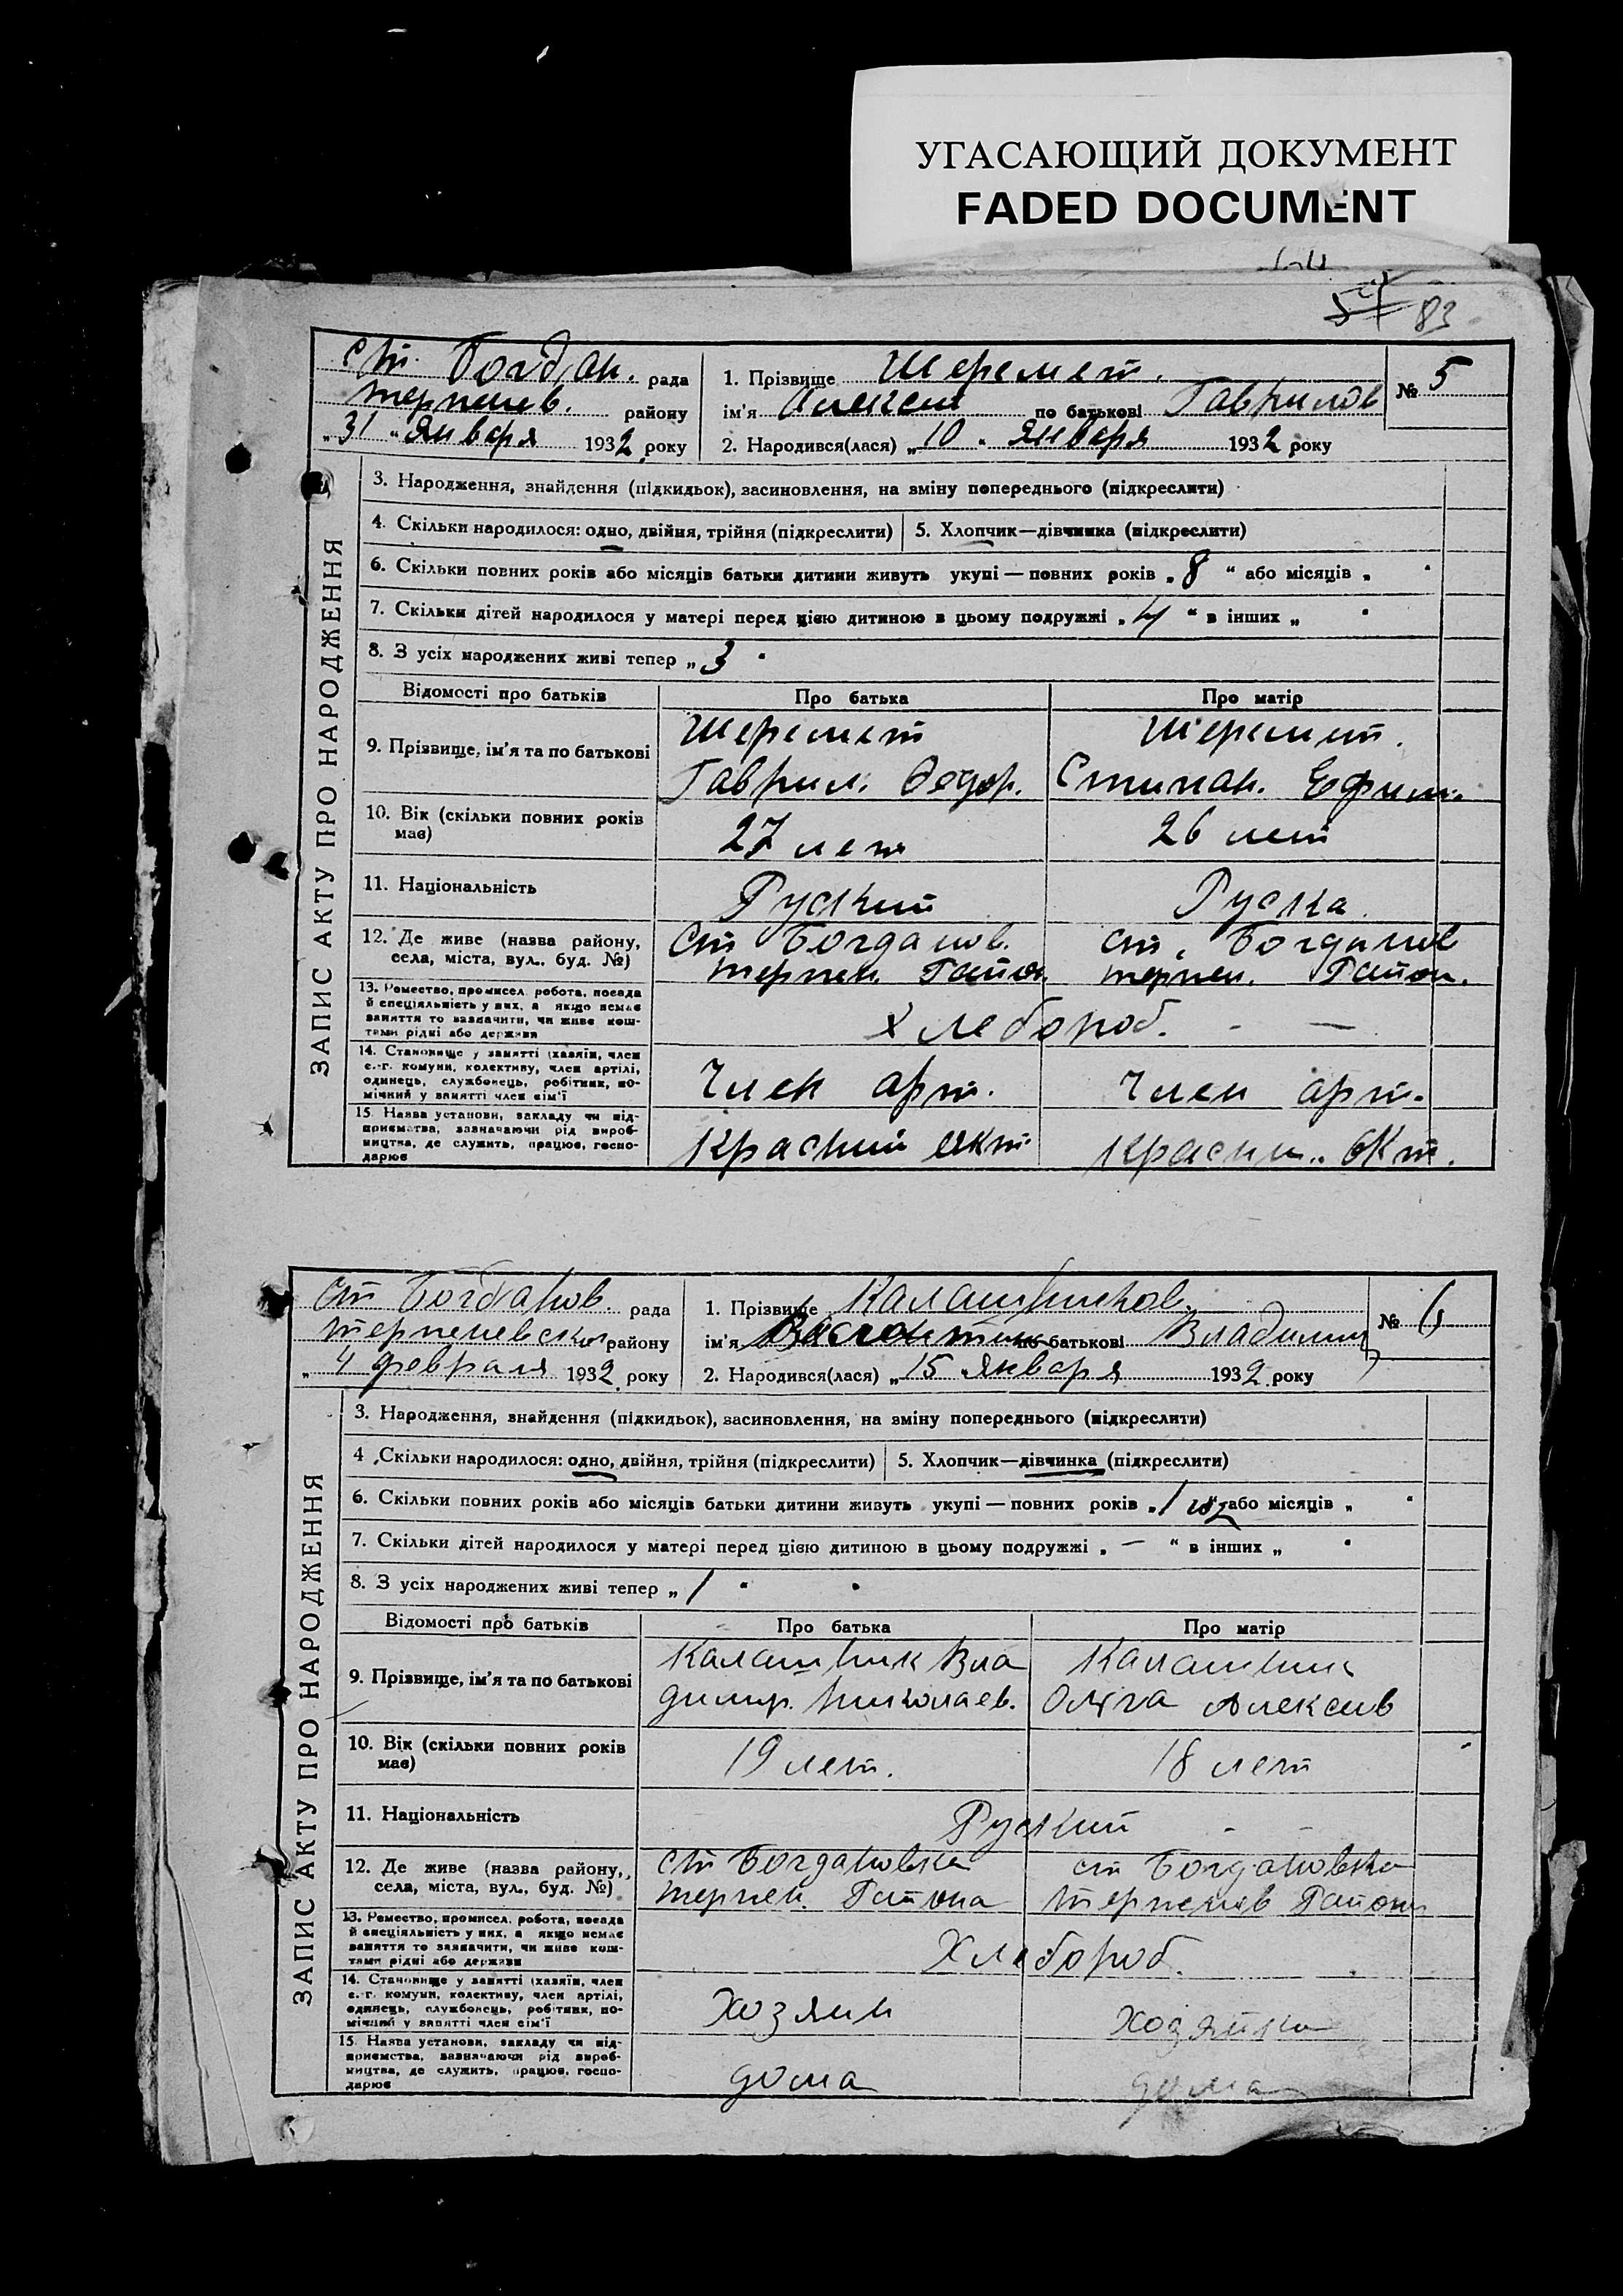 УГАСАЮЩИЙ ДОКУМЕНТ
FADED DOCUMENT
83
ст. Богдан. рада
терпенев. району
„31 „ Января 1932 року
1. Прізвище Шеремет.
ім'я Алексей по батькові Гаврилов
2. Народився(лася) „10 „ Января 1932 року
№ 5
ЗАПИС АКТУ ПРО НАРОДЖЕННЯ
3. Народження, знайдення (підкидьок), засиновлення, на зміну попереднього (підкреслити)
4. Скільки народилося: одно, двійня, трійня (підкреслити) 5. Хлопчик—дівчинка (підкреслити)
6. Скільки повних років або місяців батьки дитини живуть укупі — повних років „ 8 “ або місяців „
7. Скільки дітей народилося у матері перед цією дитиною в цьому подружжі „ 4 “ в інших „
8. З усіх народжених живі тепер „ 3 “
Відомості про батьків Про батька Про матір
9. Прізвище, ім'я та по батькові
Шеремет
Гаврил. Федор.
Шеремет.
Степан. Ефим.
10. Вік (скільки повних років має)
27 лет
26 лет
11. Національність
Руский
Руска
12. Де живе (назва району, села, міста, вул., буд. №)
Ст Богданов.
терпен. Район.
ст. Богданов
терпен. Район.
13. Ремество, промисел, робота, посада
й спеціяльність у них, а якщо немає
заняття то зазначити, чи живе кош-
тами рідні або держави
Хлебороб. - —
14. Становище у занятті (хазяїн, член
с.-г. комуни, колективу, член артілі,
одинець, службовець, робітник, по-
мічний у занятті член сім'ї
Член арт.
Член арт.
15. Назва установи, закладу чи під-
приємства, зазначаючи рід вироб-
ництва, де служить, працює, госпо-
дарює
Красний Окт
Красни.. Окт.
ст Богданов. рада
терпеневског району
„ 4 февраля 1932 року
1. Прізвище Калашников.
ім'я по батькові Владимир
2. Народився(лася) „15 „ Января 1932 року
№ 6
ЗАПИС АКТУ ПРО НАРОДЖЕННЯ
3. Народження, знайдення (підкидьок), засиновлення, на зміну попереднього (підкреслити)
4 Скільки народилося: одно, двійня, трійня (підкреслити) 5. Хлопчик—дівчинка (підкреслити)
6. Скільки повних років або місяців батьки дитини живуть укупі — повних років „ 1 год “ або місяців „ “
7. Скільки дітей народилося у матері перед цією дитиною в цьому подружжі „ — “ в інших „ “
8. З усіх народжених живі тепер „ 1 “
Відомості про батьків Про батька Про матір
9. Прізвище, ім'я та по батькові
Калашник Вла
димир. Николаев.
Калашник
Ольга Алексеев
10. Вік (скільки повних років має)
19 лет.
18 лет
11. Національність
Руский - -
12. Де живе (назва району, села, міста, вул., буд. №)
ст Богдановка
терпен. Района
ст Богдановка
терпенев Района
13. Ремество, промисел, робота, посада
й спеціяльність у них, а якщо немає
заняття то зазначити, чи живе кош-
тами рідні або держави
Хлебороб.
14. Становище у занятті (хазяїн, член
с.-г. комуни, колективу, член артілі,
одинець, службовець, робітник, по-
мічний у занятті член сім'ї
Хозяин
Хозяйка
15. Назва установи, закладу чи під-
приємства, зазначаючи рід вироб-
ництва, де служить, працює, госпо-
дарює
дома
дома